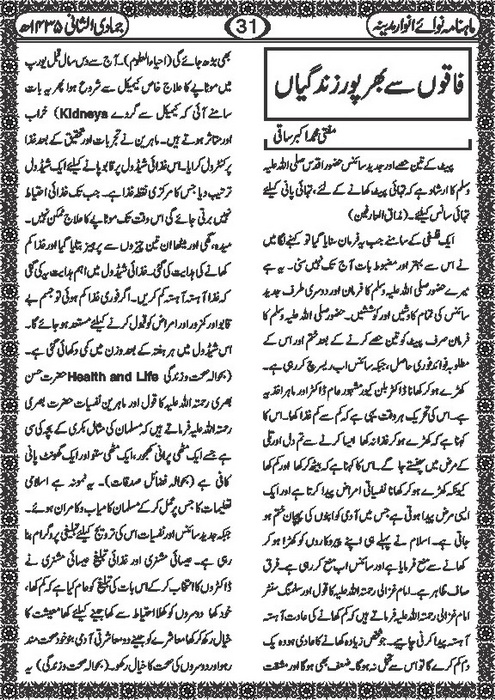 ماہنامہ نوائے انوار مدینہ
31
جمادی الثانی ۱۴۳۵ھ
فاقوں سے بھرپور زندگیاں
مفتی محمد اکبر ساقی
پیٹ کے تین حصے اور جدید سائنس حضور اقدس صلی اللہ علیہ
وسلم کا ارشاد ہے کہ تہائی پیٹ کھانے کے لئے، تہائی پانی کیلئے
تہائی سانس کیلئے۔ (مذاق العارفین)
ایک فلسفی کے سامنے جب یہ فرمان سنایا گیا تو کہنے لگا میں
نے اس سے بہتر اور مضبوط بات آج تک نہیں سنی۔ یہ ہے
میرے حضور صلی اللہ علیہ وسلم کا فرمان اور دوسری طرف جدید
سائنس کی تمام کاوشیں اور کوششیں۔ حضور صلی اللہ علیہ وسلم کا
فرمان صرف پیٹ کو تین حصے کرنے کے بعد ختم اور اس کے
مطلوبہ فوائد فوری حاصل، جبکہ سائنس اب ریسرچ کر رہی ہے۔
کھڑے ہو کر کھانا ڈاکٹر بلن کیور مشہور عام ڈاکٹر اور ماہر اغذیہ
ہے۔ اس کی تحریک ہر وقت یہی ہے کہ کم سے کم غذا کھا۔ اس کا
کہنا ہے کہ کھڑے ہو کر غذا نہ کھا ایسا کرنے سے تم دل اور تلی
کے مرض میں پھنستے جا گے۔ اس کا کہنا ہے کہ بیٹھ کر کھا اور کم کھا
کیونکہ کھڑے ہو کر کھانا نفسیاتی امراض پیدا کرتا ہے اور ایک
ایسی مرض پیدا ہوتی ہے جس میں آدمی کو اپنوں کی پہچان ختم ہو
جاتی ہے۔ اسلام نے پہلے ہی اپنے پیروکاروں کو کھڑا ہو کر
کھانے سے منع فرمایا ہے اور سائنس اب منع کر رہی ہے۔ فرق
صاف ظاہر ہے۔ امام غزالی رحمتہ اللہ علیہ کا قول اور سلمنگ سنٹر
امام غزالی رحمتہ اللہ علیہ فرماتے ہیں کہ کم کھانے کی عادت آہستہ
آہستہ پیدا کرنی چاہیے۔ جو شخص زیادہ کھانے کا عادی ہو وہ یک
دم کم کرے گا تو اس سے تحمل نہ ہوگا۔ ضعف بھی ہوگا اور مشقت
بھی بڑھ جائے گی (احیاء العلوم)۔ آج سے بیس سال قبل یورپ
میں موٹاپے کا علاج خاص کیمیکل سے شروع ہوا پھر یہ بات
سامنے آئی کہ کیمیکل سے گردے Kidneys) خراب
اور متاثر ہوتے ہیں۔ ماہرین نے تجربات اور تحقیق کے بعد غذا
پر کنٹرول کرایا۔ اس غذائی شیڈول پر قابو پانے کیلئے ایک شیڈول
ترتیب دیا جس کا مرکزی نقطہ غذا ہے۔ جب تک غذائی احتیاط
نہیں برتی جائے گی اس وقت تک موٹاپے کا علاج ممکن نہیں۔
میدہ، گھی اور میٹھا ان تین چیزوں سے پرہیز بتایا گیا اور غذا کم
کھانے کی ہدایت کی گئی۔ غذائی شیڈول میں اہم ہدایت یہ کی گئی
کہ غذا آہستہ آہستہ کم کریں۔ اگر فوری غذا کم ہوئی تو جسم بے
قابو اور کمزور اور امراض کو قبول کرنے کیلئے مستعد ہو جائے گا۔
اس شیڈول میں ہر ہفتہ کے بعد وزن میں کمی دکھائی گئی ہے۔
(بحوالہ صحت و زندگی Health and Life حضرت حسن
بصری رحمتہ اللہ علیہ کا قول اور ماہرین نفسیات حضرت بصری
رحمتہ اللہ علیہ فرماتے ہیں کہ مسلمان کی مثال بکری کے بچہ کی سی
ہے جسے ایک مٹھی پرانی کھجور، ایک مٹھی ستو اور ایک گھونٹ پانی
کافی ہے (بحوالہ فضائل صدقات)۔ یہ نمونہ ہے اسلامی
تعلیمات کا جس پر عمل کر کے مسلمان کامیاب و کامران ہوئے۔
جبکہ جدید سائنس اور نفسیات اس کی ترویج کیلئے تبلیغی پروگرام بنا
رہی ہے۔ عیسائی مشنری اور غذائی تبلیغ عیسائی مشنری نے
ڈاکٹروں کا انتخاب کر کے اس بات کی تبلیغ کو عام کیا ہے کم کھا،
خود کھا دوسروں کو کھلا احتیاط سے کھا جینے کیلئے کھا معیشت کا
خیال رکھ کر کھا معاشرے کو جینے دو معاشرتی آدمی بنو خود صحت مند
رہو اور دوسروں کی صحت کا خیال رکھو۔ (بحوالہ صحت و زندگی) یہ